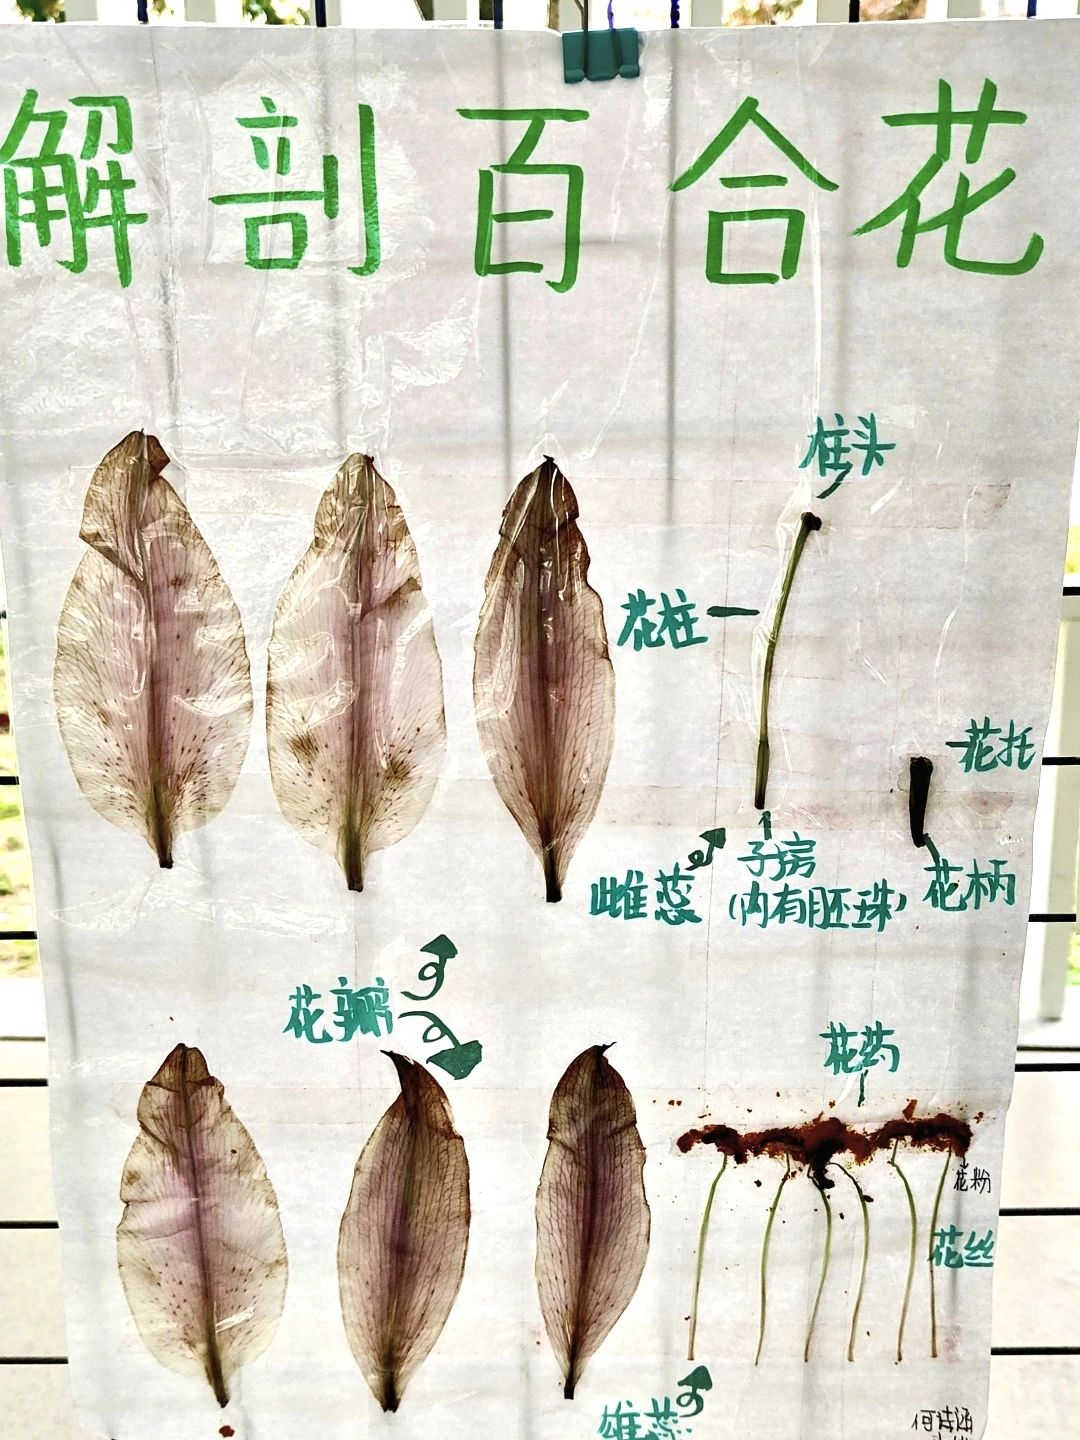 解剖百合花
柱头
花柱
花托
子房
(内有胚珠)
雌蕊
花柄
花瓣
花药
花粉
花丝
雄蕊